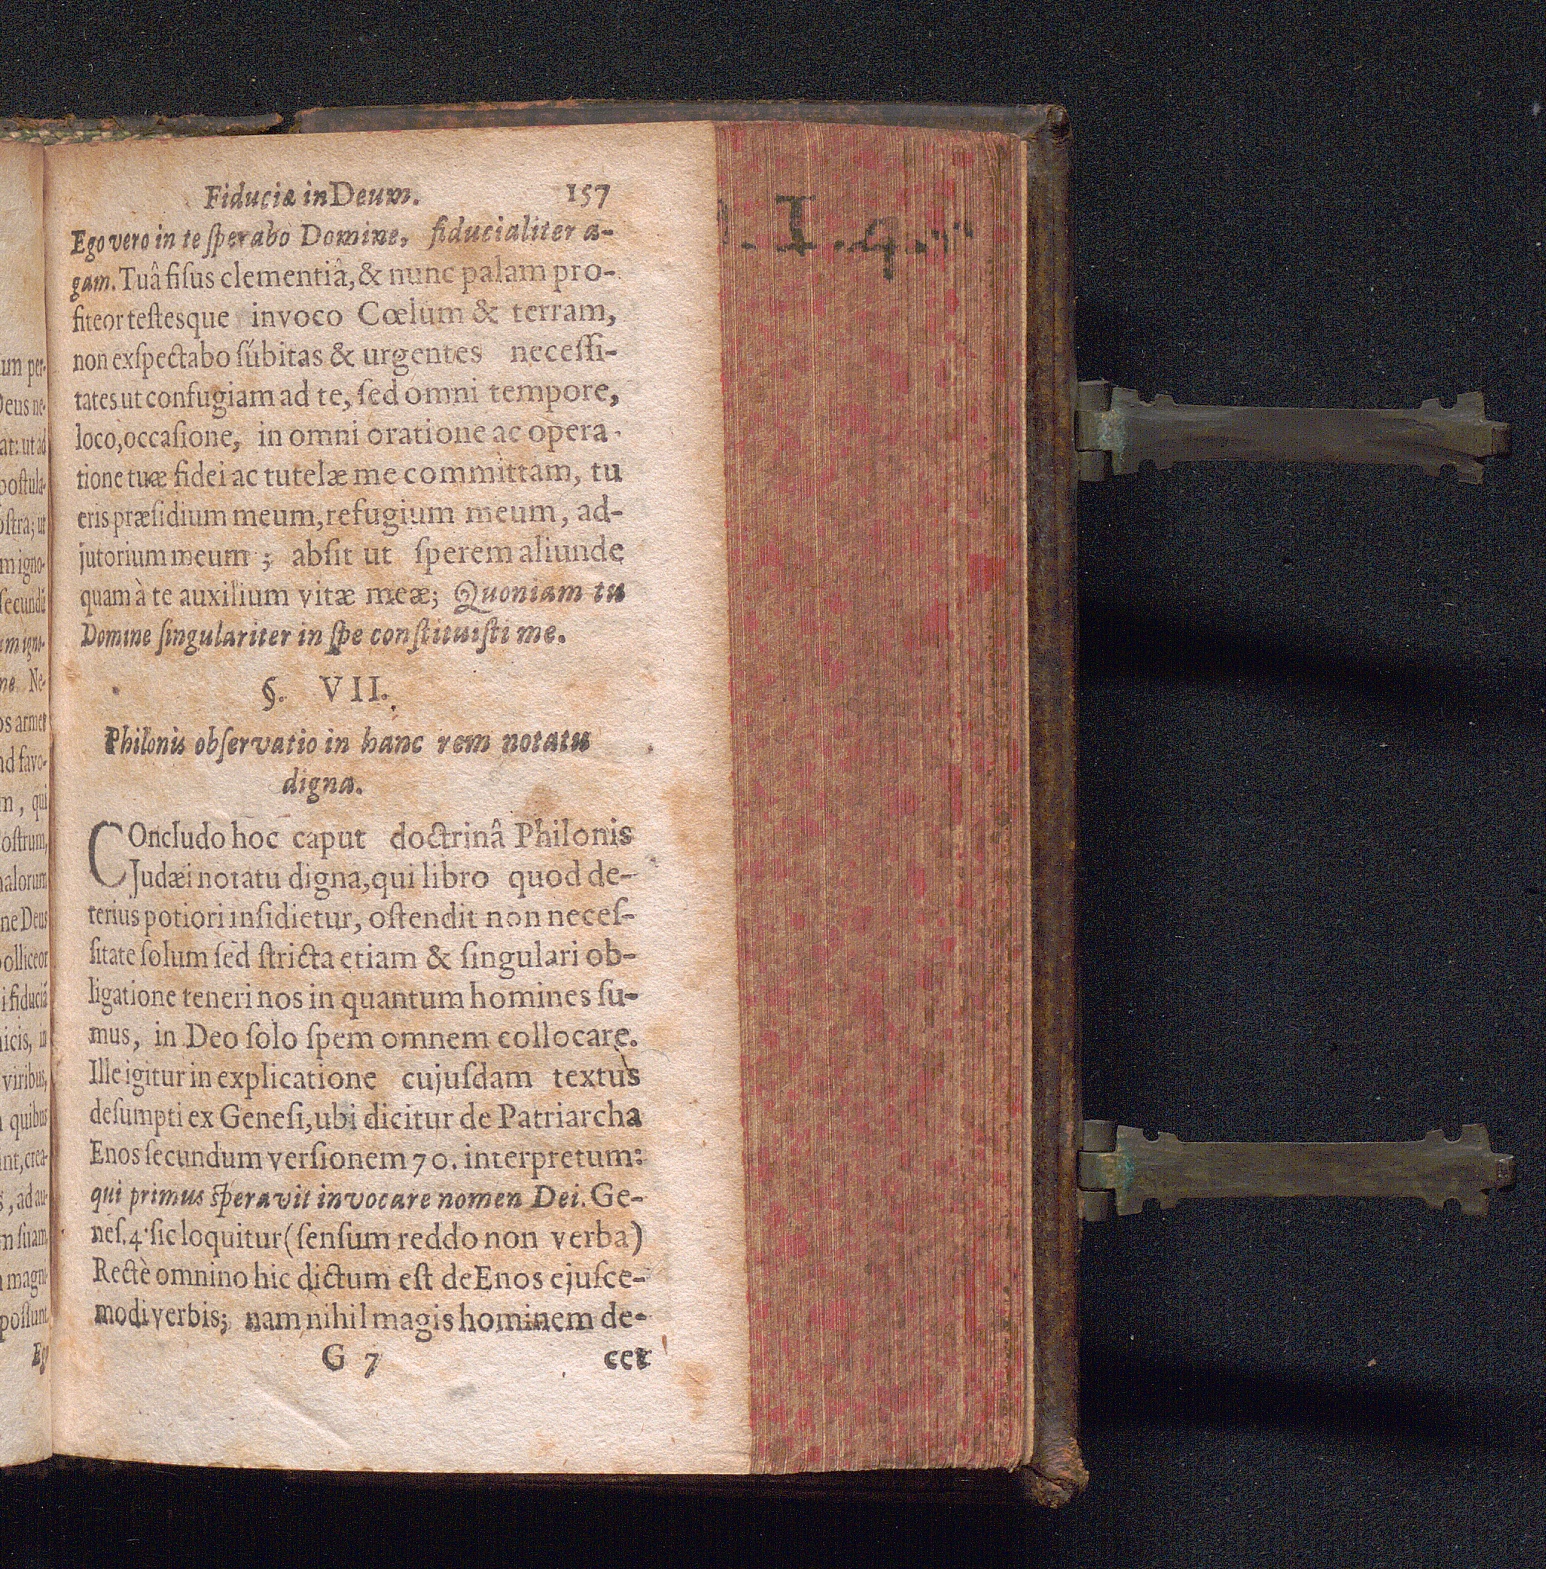 Fiducia in Deum. 157
Ego vero in te ſperabo Domine, fiducialiter a-
gam. Tuâ fiſus clementiâ, & nunc palam pro-
fiteor teſtesque invoco Cœlum & terram,
non exſpectabo ſúbitas & urgentes neceſſi-
tates ut confugiam ad te, ſed omni tempore,
loco, occaſione, in omni oratione ac opera-
tione tuæ fidei ac tutelæ me committam, tu
eris præſidium meum, refugium meum, ad-
jutorium meum; abſit ut ſperem aliunde
quam à te auxilium vitæ meæ; Quoniam tu
Domine ſingulariter in ſpe conſtituiſti me.
§. VII.
Philonis obſervatio in hanc rem notatu
digna.
COncludo hoc caput doctrinâ Philonis
Judæi notatu digna, qui libro quod de-
terius potiori inſidietur, oſtendit non neceſ-
ſitate ſolum ſed ſtricta etiam & ſingulari ob-
ligatione teneri nos in quantum homines ſu-
mus, in Deo ſolo ſpem omnem collocare.
Ille igitur in explicatione cujuſdam textùs
deſumpti ex Geneſi, ubi dicitur de Patriarcha
Enos ſecundum verſionem 70. interpretum:
qui primus ſperavit invocare nomen Dei. Ge-
neſ. 4. ſic loquitur (ſenſum reddo non verba)
Rectè omnino hic dictum eſt de Enos ejuſce-
modi verbis; nam nihil magis hominem de-
G 7 cet
um per-
Deus ne-
at: ut ad
poſtula-
oſtra; ut
m igno-
ſecundũ
um igno-
ne. Ne-
os armet
nd favo-
m, qui
oſtrum,
malorum
ne Deus
polliceor
i fiduciã
nicis, in
viribus,
quibus
nt, crea-
s, ad au-
m ſuam
magni-
poſſunt.
Eg
I. 4.